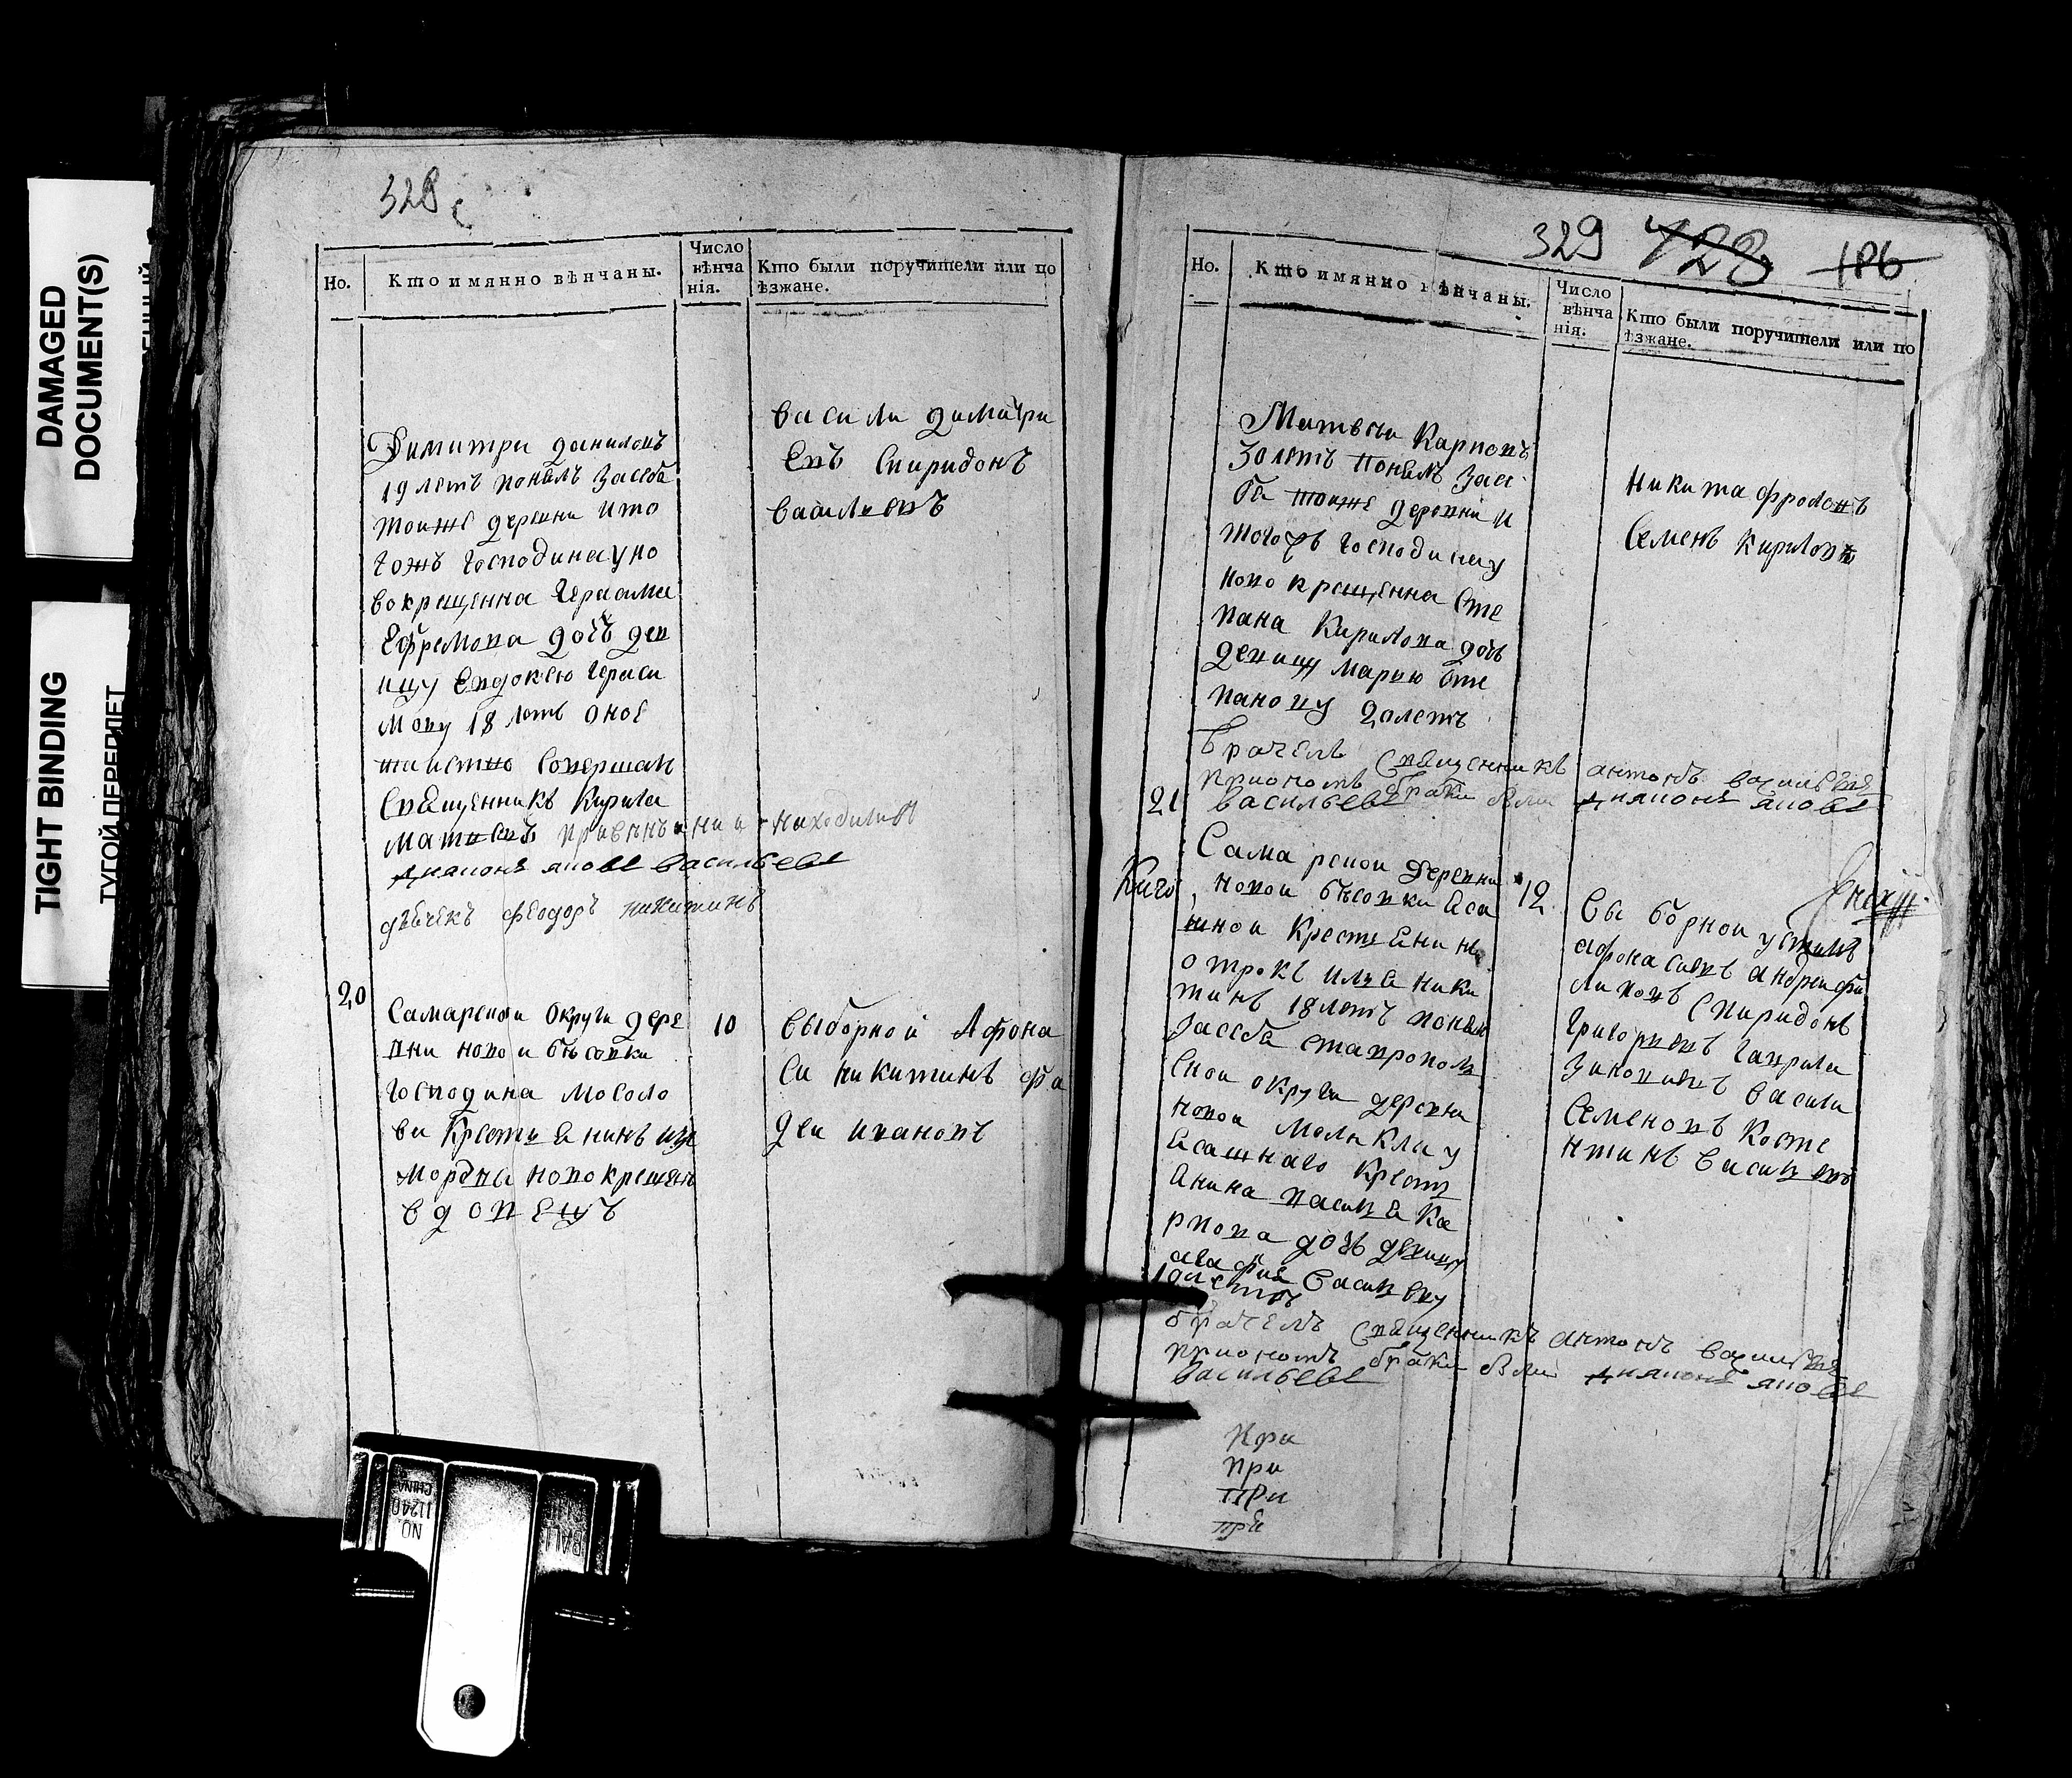 DAMAGED
DOCUMENT(S)
TIGHT BINDING
ТУГОЙ ПЕРЕПЛЕТ
328
Но.
Кто имянно вѣнчаны.
Число
вѣнча
нія.
Кто были поручители или по
ѣзжане.
Димитри данилонъ
19 летъ понялъ засеба
тоиже деревни ито
гожъ господина у но
вокрещенна герасима
Ефремова дочъ дев
ицу Евдокею гераси
мову 18 летъ оное
таинство совершал
Священникъ Кирила
матвевъ
дияконъ яковъ васильевъ
дьячекъ феодоръ никитинъ
васили димитри
Евъ Спиридонъ
василиевъ
20
Самарской округи дере
вни новои бѣсовки
господина мосоло
ва Крестиянинъ изъ
мордвы новокрещенъ
вдовецъ
10
выборной Афона
си никитинъ фа
деи ивановъ
329 728 186
Но.
Кто имянно вѣнчаны.
Число
вѣнча
нія.
Кто были поручители или по
ѣзжане.
Матвеи Карповъ
30 летъ понелъ засе
ба тоиже деревни и
тогожъ господина у
ново крещенна Сте
пана Кирилова дочь
девицу марию Сте
панову 20 летъ
Никита фроловъ
Семенъ Кириловъ
Священникъ антонъ васильевъ
васильевъ дияконъ яковъ
21
Самарской деревни
новои бѣсовки Яса
шнои Крестьянинъ
отрокъ илья ники
тинъ 18 летъ понялъ
засеба ставрополь
Скои округи деревни
новои малыклы у
Ясашнаго Крестья
нина василья Ка
рпова дочь девицу
агафию Васильеву
летъ
12
Вы борнои устинъ
афонасиевъ андреи фи
липовъ Спиридонъ
григориевъ гаврила
васили
Семеновъ Коста
нтинъ васильевъ
Священникъ антонъ васильевъ
васильевъ дияконъ яковъ
Кри
при
при
при
NO.
11240
CHINA